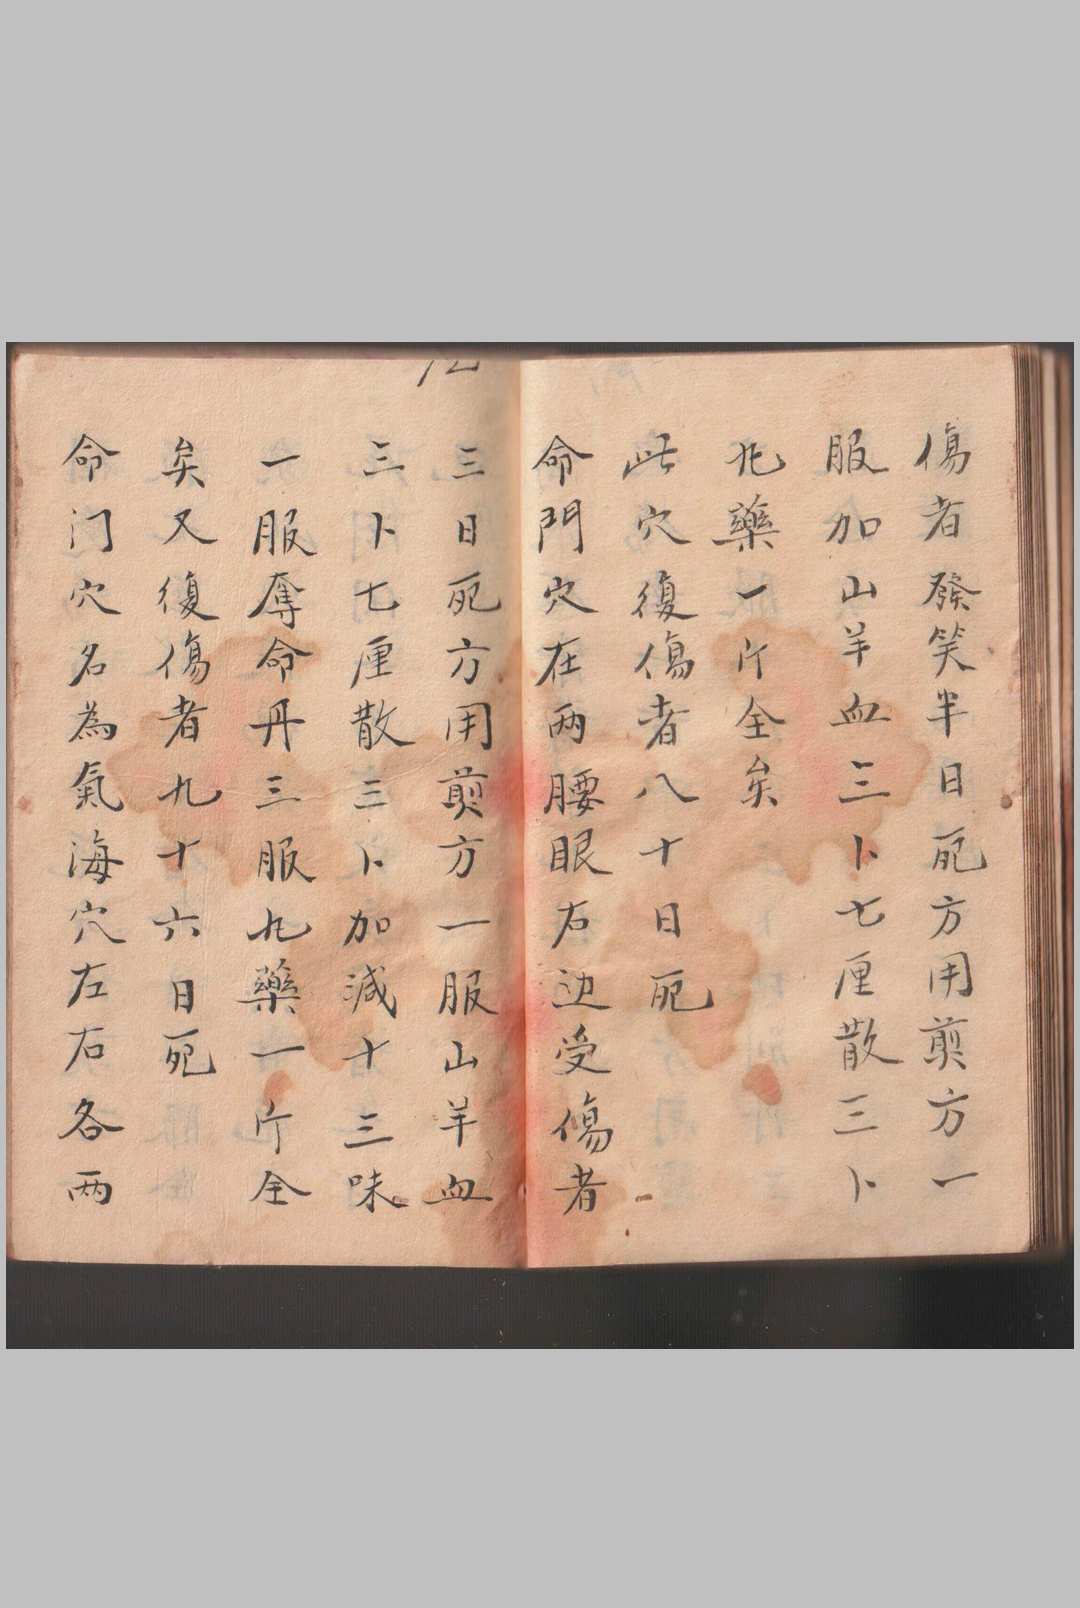 傷者發笑半日死方用剪方一
服加山羊血三卜七厘散三卜
九藥一片全矣
此穴復傷者八十日死
命門穴在两腰眼右边受傷者
三日死方用剪方一服山羊血
三卜七厘散三卜加減十三味
一服奪命丹三服九藥一片全
矣又復傷者九十六日死
命门穴名為氣海穴左右各两